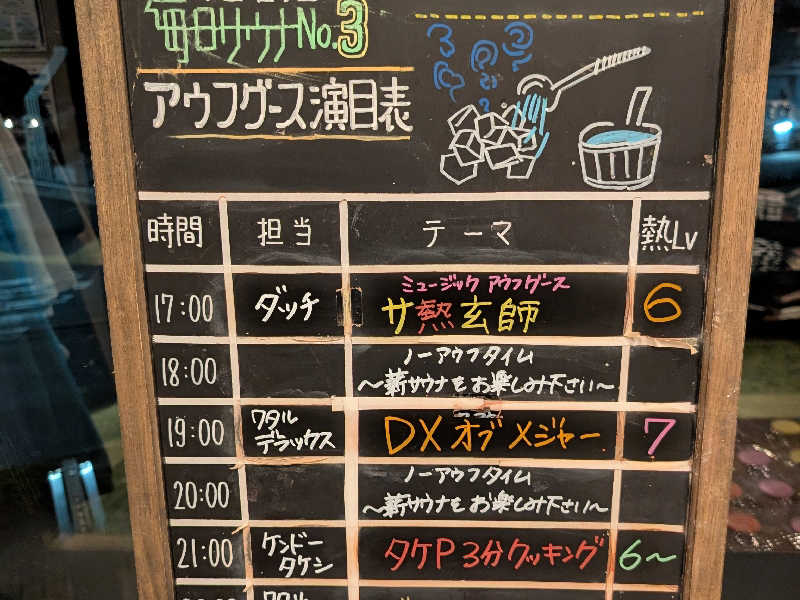 毎日サウナNo.3
アウフグース演目表
時間 担当 テーマ 熱Lv
ミュージック アウフグース
17:00 ダッチ サ熱玄師 6
ノーアウフタイム
18:00 〜薪サウナをお楽しみ下さい〜
ワタル
19:00 デラックス DXオブメジャー 7
ノーアウフタイム
20:00 〜薪サウナをお楽しみ下さい〜
ケンドー
21:00 タケシ タケP3分クッキング 6〜
ワタル